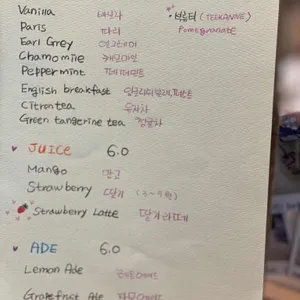 Vanilla 바닐라
석류티 (TEEKANNE)
Pomegranate
Paris 파리
Earl Grey 얼그레이
Chamomile 캐모마일
Peppermint 페퍼민트
English breakfast 잉글리쉬 브렉퍼스트
Citron tea 유자차
Green tangerine tea 청귤차
♥ JUICE 6.0
Mango 망고
Strawberry 딸기
Strawberry Latte 딸기라떼
♥ ADE 6.0
Lemon Ade 레몬에이드
Grapefruit Ade 자몽에이드